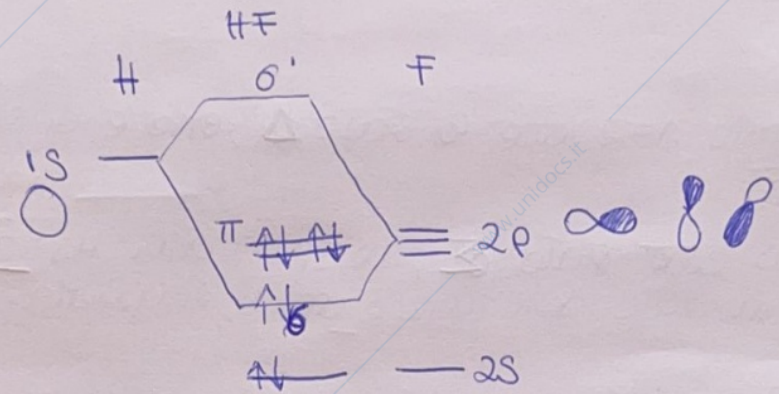 HF
H σ' F
1S
π ↑↓ ↑↓ 2p
↑↓ σ
↑↓ 2S
www.unidocs.it